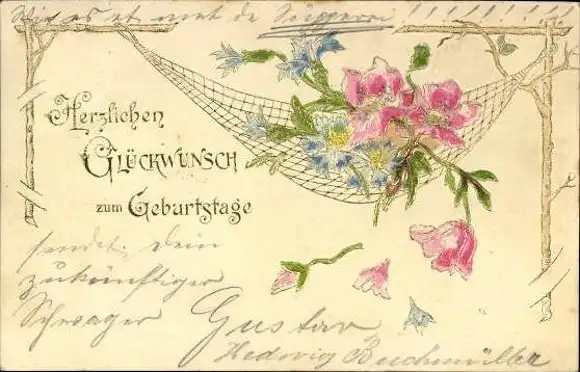 Wie es et met de
Herzlichen
Glückwunsch
zum Geburtstage
sendet, Dein
zukünftiger
Schwager Gustav
Hedwig Buchmüller